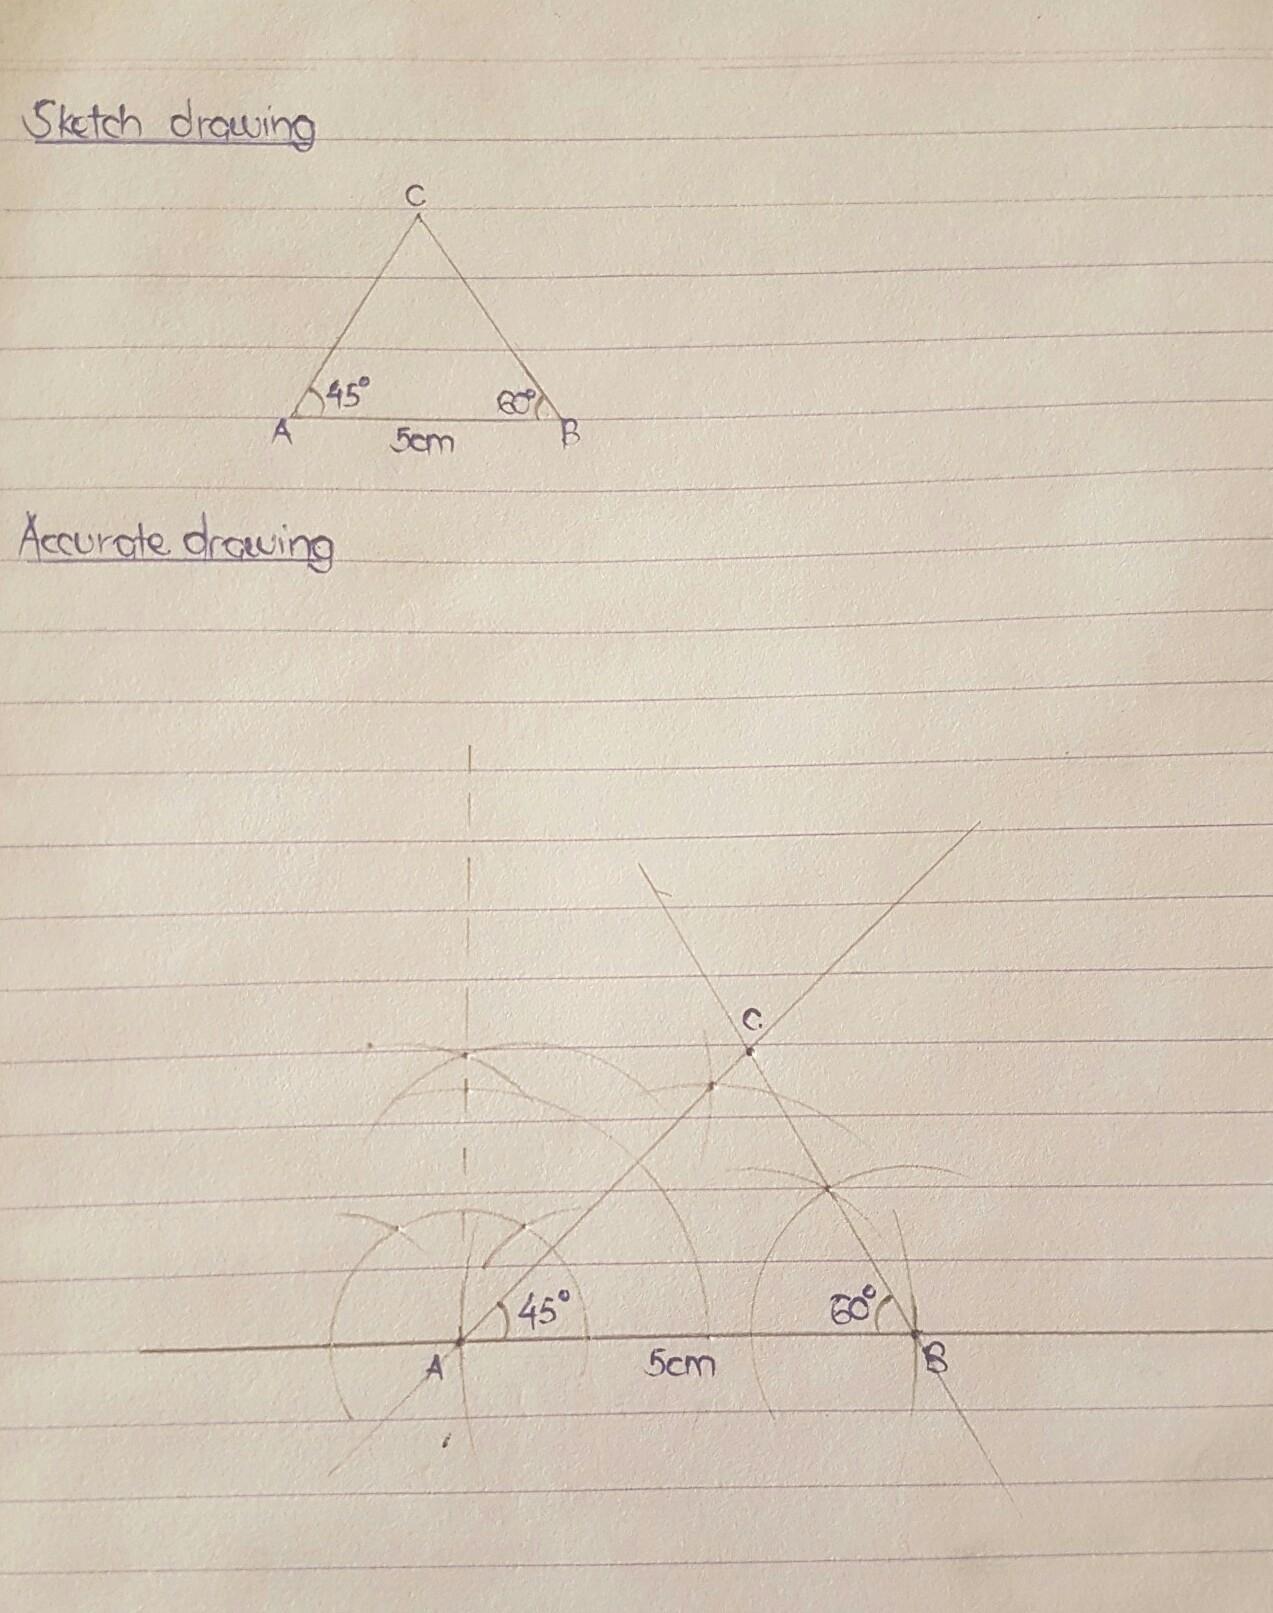 Sketch drawing
C
45° 60°
A 5cm B
Accurate drawing
C
45° 60°
A 5cm B